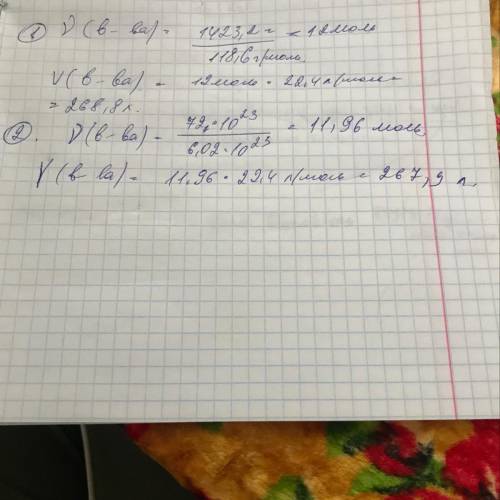 1) ν(в-ва) = 1423,2 г / 118,6 г/моль = 12 моль
V(в-ва) = 12 моль · 22,4 л/моль =
= 268,8 л.
2). ν(в-ва) = 72 · 10²³ / 6,02 · 10²³ = 11,96 моль.
V(в-ва) = 11,96 · 22,4 л/моль = 267,9 л.